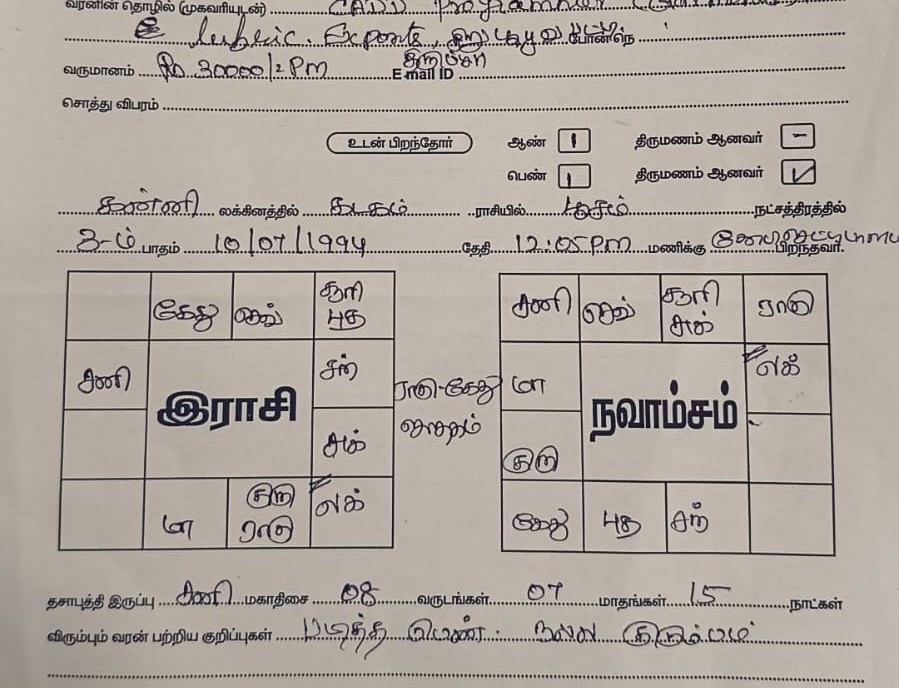 வரனின் தொழில் (முகவரியுடன்) CADD Programmer
Exports, போன்/செ
வருமானம் Rs 30000/= PM E-mail ID
சொத்து விபரம்
உடன் பிறந்தோர் ஆண் 1 திருமணம் ஆனவர் -
பெண் 1 திருமணம் ஆனவர் ✓
கன்னி லக்கினத்தில் கடகம் ராசியில் பூசம் நட்சத்திரத்தில்
3-ம் பாதம் 10/07/1994 தேதி 12:05 P.M மணிக்கு பிறந்தவர்.
கேது செவ் சூரி புத
சனி சந்
இராசி
சுக்
மா குரு ராகு லக்
ராகு-கேது ஜாதகம்
சனி செவ் சூரி சுக் ராகு
மா லக்
நவாம்சம்
குரு
கேது புத சந்
தசாபுத்தி இருப்பு சனி மகாதிசை 08 வருடங்கள் 07 மாதங்கள் 15 நாட்கள்
விரும்பும் வரன் பற்றிய குறிப்புகள் படித்த பெண். நல்ல குடும்பம்